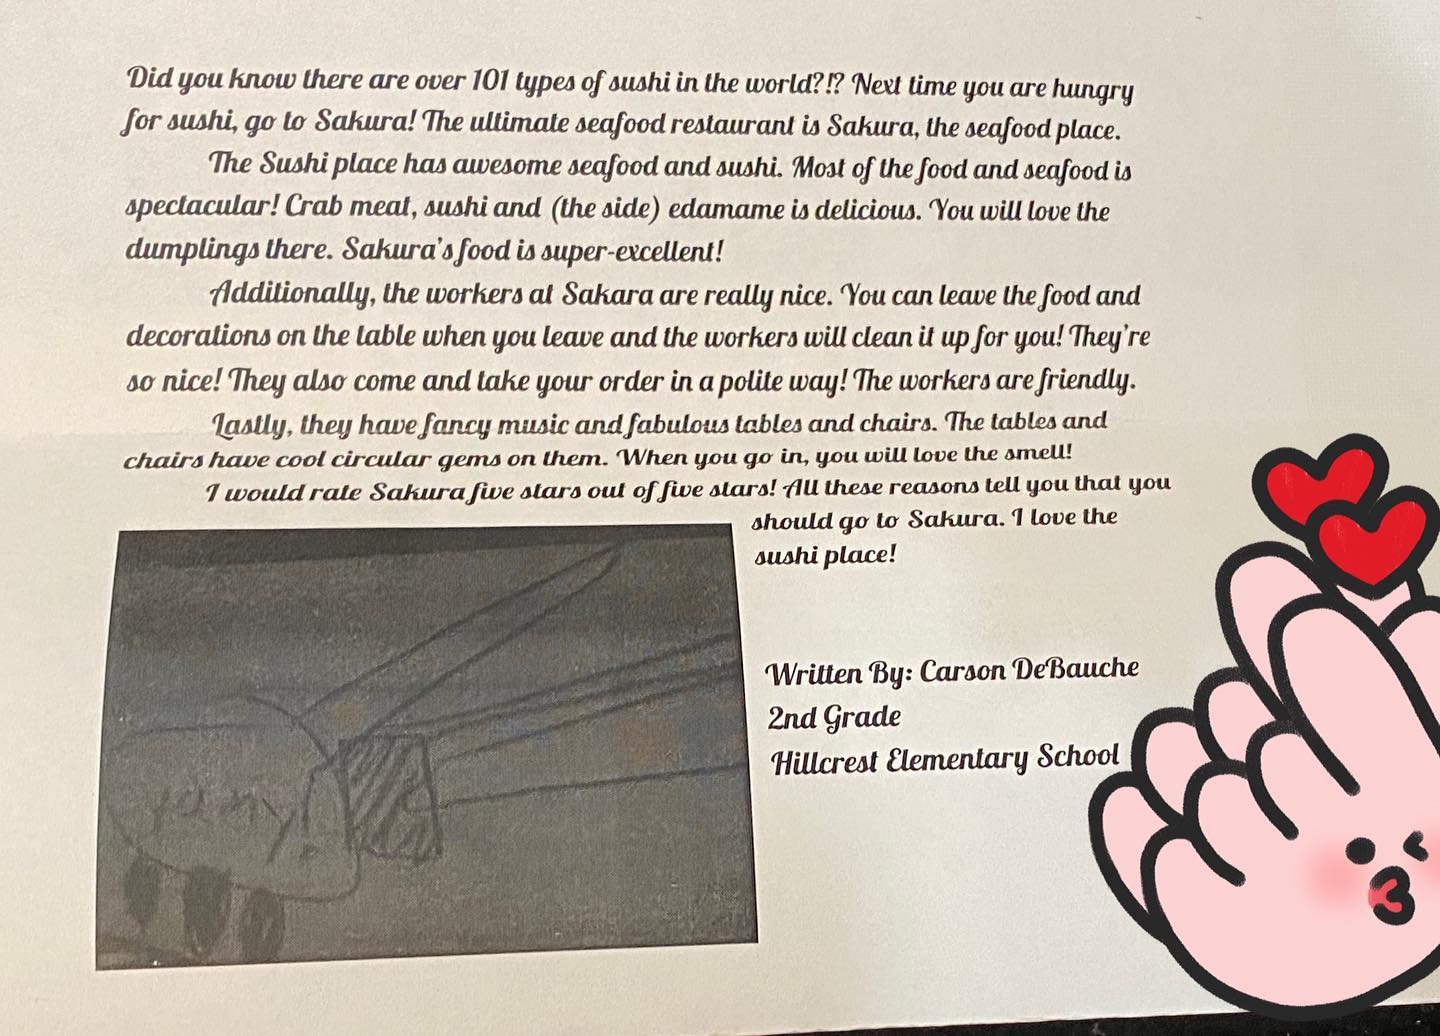 Did you know there are over 101 types of sushi in the world?!? Next time you are hungry
for sushi, go to Sakura! The ultimate seafood restaurant is Sakura, the seafood place.
The Sushi place has awesome seafood and sushi. Most of the food and seafood is
spectacular! Crab meat, sushi and (the side) edamame is delicious. You will love the
dumplings there. Sakura's food is super-excellent!
Additionally, the workers at Sakara are really nice. You can leave the food and
decorations on the table when you leave and the workers will clean it up for you! They're
so nice! They also come and take your order in a polite way! The workers are friendly.
Lastly, they have fancy music and fabulous tables and chairs. The tables and
chairs have cool circular gems on them. When you go in, you will love the smell!
I would rate Sakura five stars out of five stars! All these reasons tell you that you
should go to Sakura. I love the
sushi place!
Written By: Carson DeBauche
2nd Grade
Hillcrest Elementary School